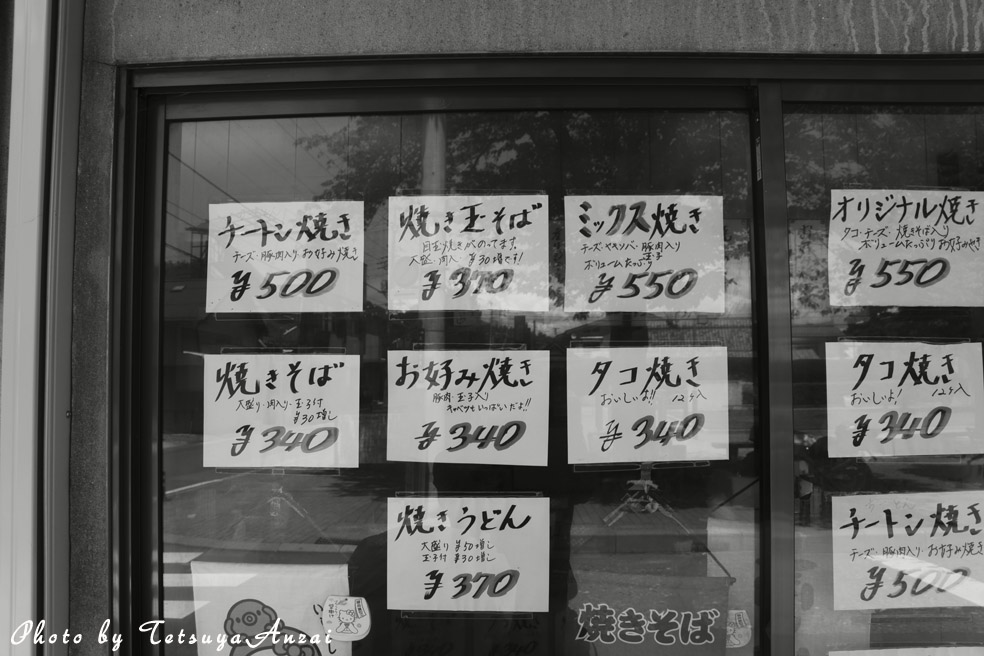 チートン焼き
チーズ・豚肉入りお好み焼き
¥500
焼き玉そば
目玉焼きがのってます。
大盛・肉入・¥30増です!
¥370
ミックス焼き
チーズ・ヤキソバ・豚肉入り
玉子
ボリュームたっぷり
¥550
オリジナル焼き
タコ・チーズ・焼きそば入り
ボリュームたっぷりお好みやき
¥550
焼きそば
大盛り・肉入り・玉子付
¥30増し
¥340
お好み焼き
豚肉・玉子入り
キャベツもいっぱいだよ!!
¥340
タコ焼き
おいしいよ!! 12ケ入
¥340
タコ焼き
おいしいよ! 12ケ入
¥340
焼きうどん
大盛り ¥50増し
玉子付 ¥30増し
¥370
チートン焼き
チーズ・豚肉入り・お好み焼き
¥500
焼きそば
Photo by Tetsuya Anzai